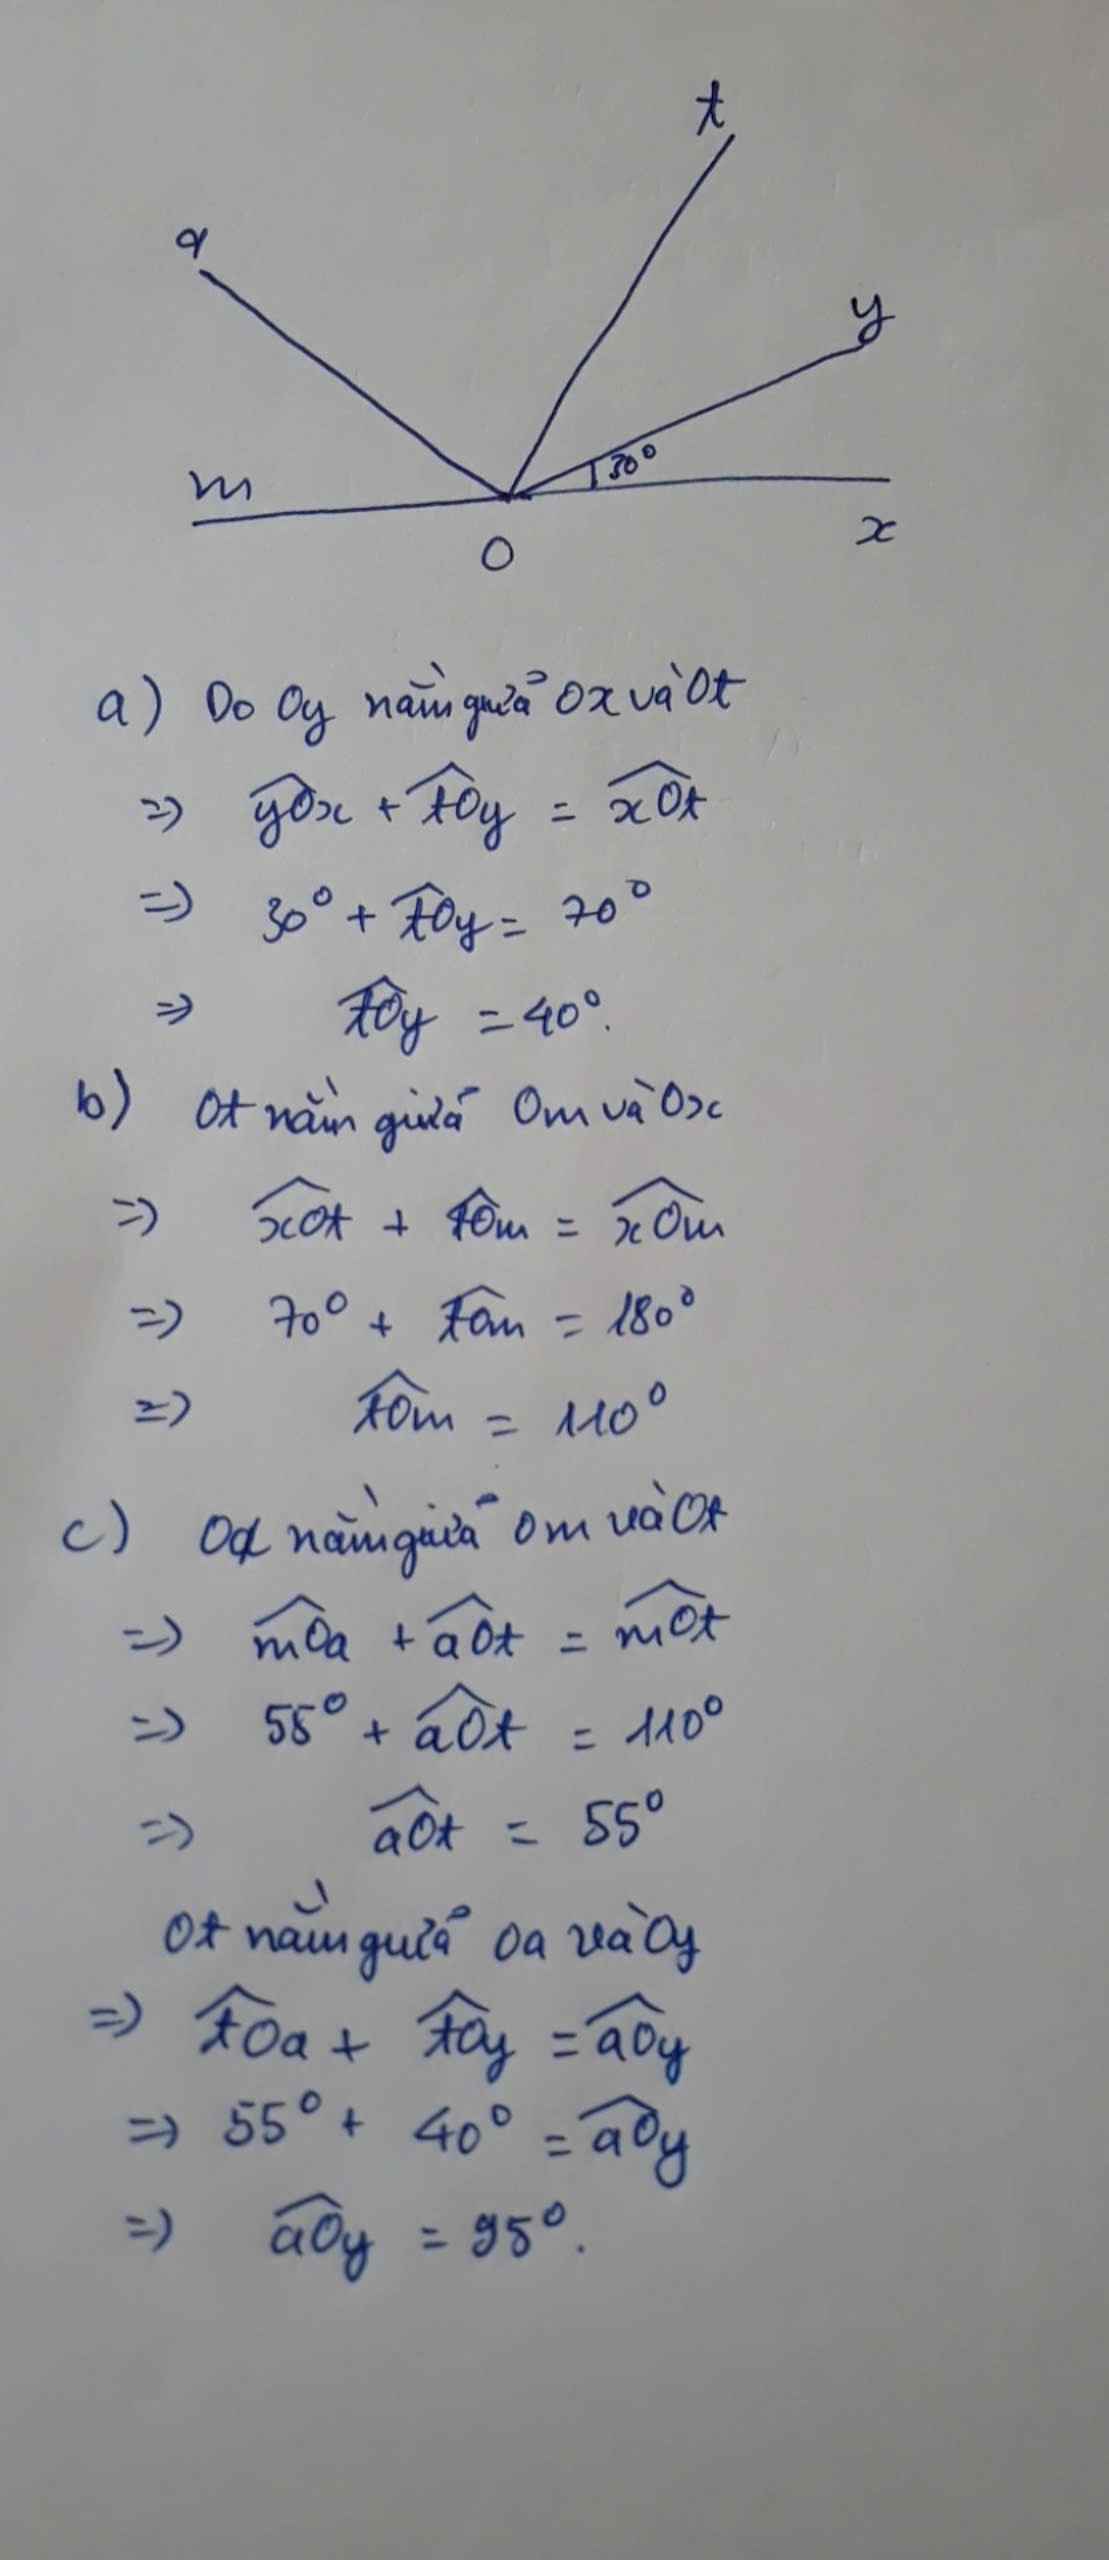 t
a
y
m
30°
O
x
a) Do Oy nằm giữa Ox và Ot
=> yOx + tOy = xOt
=> 30° + tOy = 70°
=> tOy = 40°.
b) Ot nằm giữa Om và Ox
=> xOt + tOm = xOm
=> 70° + tOm = 180°
=> tOm = 110°
c) Oa nằm giữa Om và Ot
=> mOa + aOt = mOt
=> 55° + aOt = 110°
=> aOt = 55°
Ot nằm giữa Oa và Oy
=> tOa + tOy = aOy
=> 55° + 40° = aOy
=> aOy = 95°.